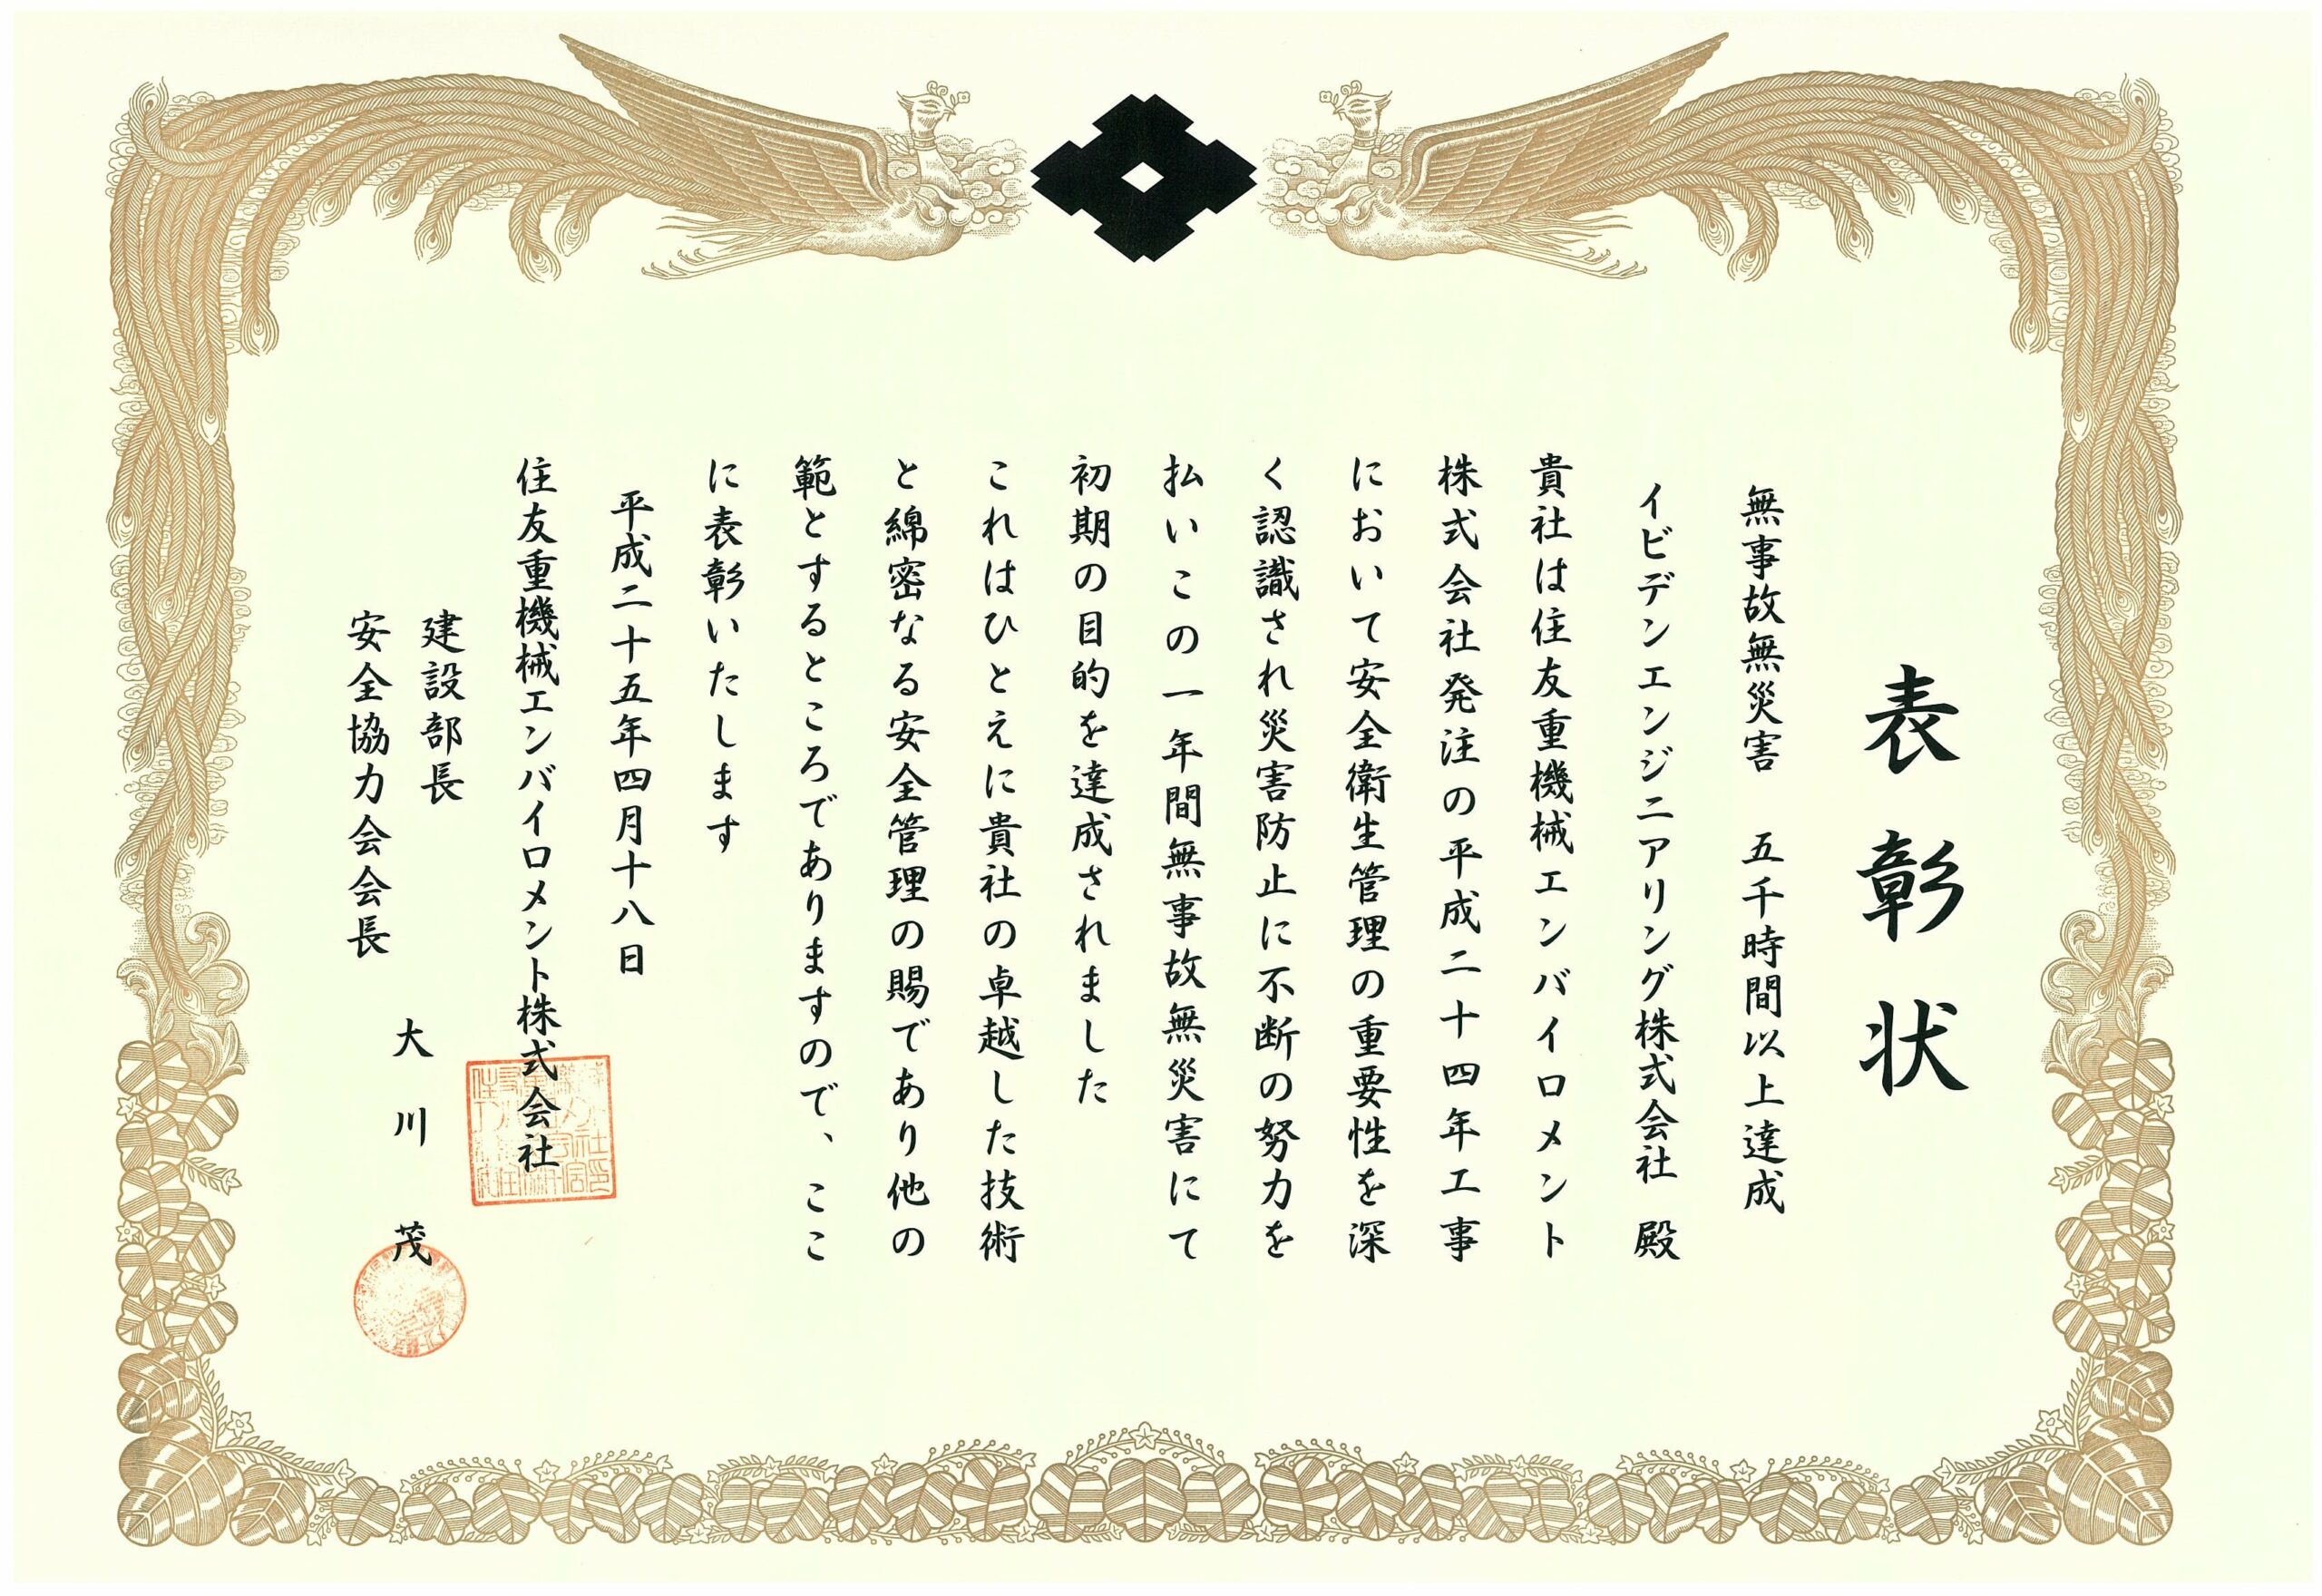 表彰状
無事故無災害　五千時間以上達成
イビデンエンジニアリング株式会社　殿
貴社は住友重機械エンバイロメント
株式会社発注の平成二十四年工事
において安全衛生管理の重要性を深
く認識され災害防止に不断の努力を
払いこの一年間無事故無災害にて
初期の目的を達成されました
これはひとえに貴社の卓越した技術
と綿密なる安全管理の賜であり他の
範とするところでありますので、ここ
に表彰いたします
平成二十五年四月十八日
住友重機械エンバイロメント株式会社
建設部長
安全協力会会長
大川茂